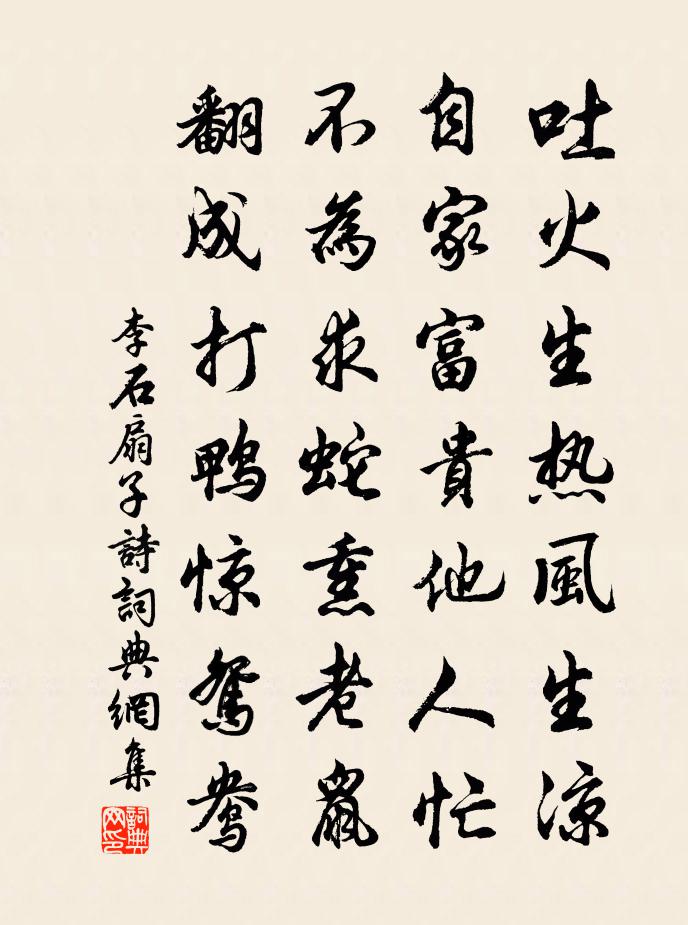 吐火生热風生涼
自家富貴他人忙
不為求蛇熏老鼠
翻成打鴨惊鴛鴦
李石扇子詩詞典網集
詞典网印